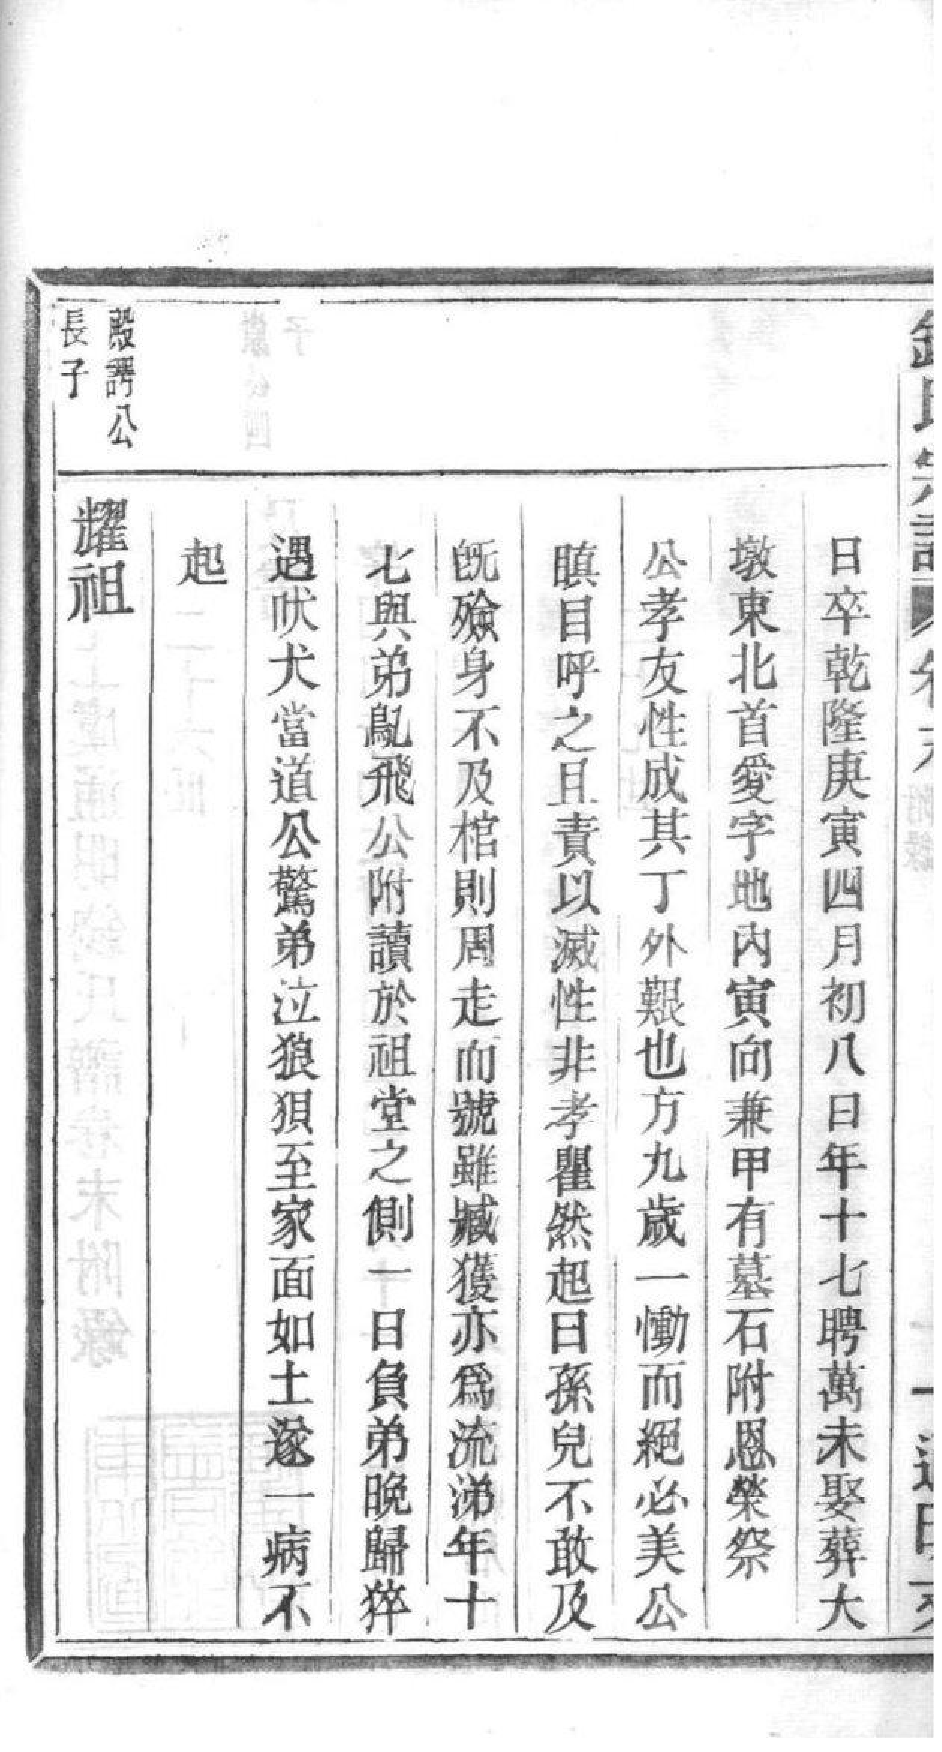 日卒乾隆庚寅四月初八日年十七聘萬未娶葬大
墩東北首愛字地內寅向兼甲有墓石附恩榮祭
公孝友性成其丁外艱也方九歲一慟而絕必美公
瞋目呼之且責以滅性非孝瞿然起曰孫兒不敢及
旣殮身不及棺則周走而號雖臧獲亦爲流涕年十
七與弟鳧飛公附讀於祖堂之側一日負弟晚歸猝
遇吠犬當道公驚弟泣狼狽至家面如土遂一病不
起
殿諤公
長子
耀祖